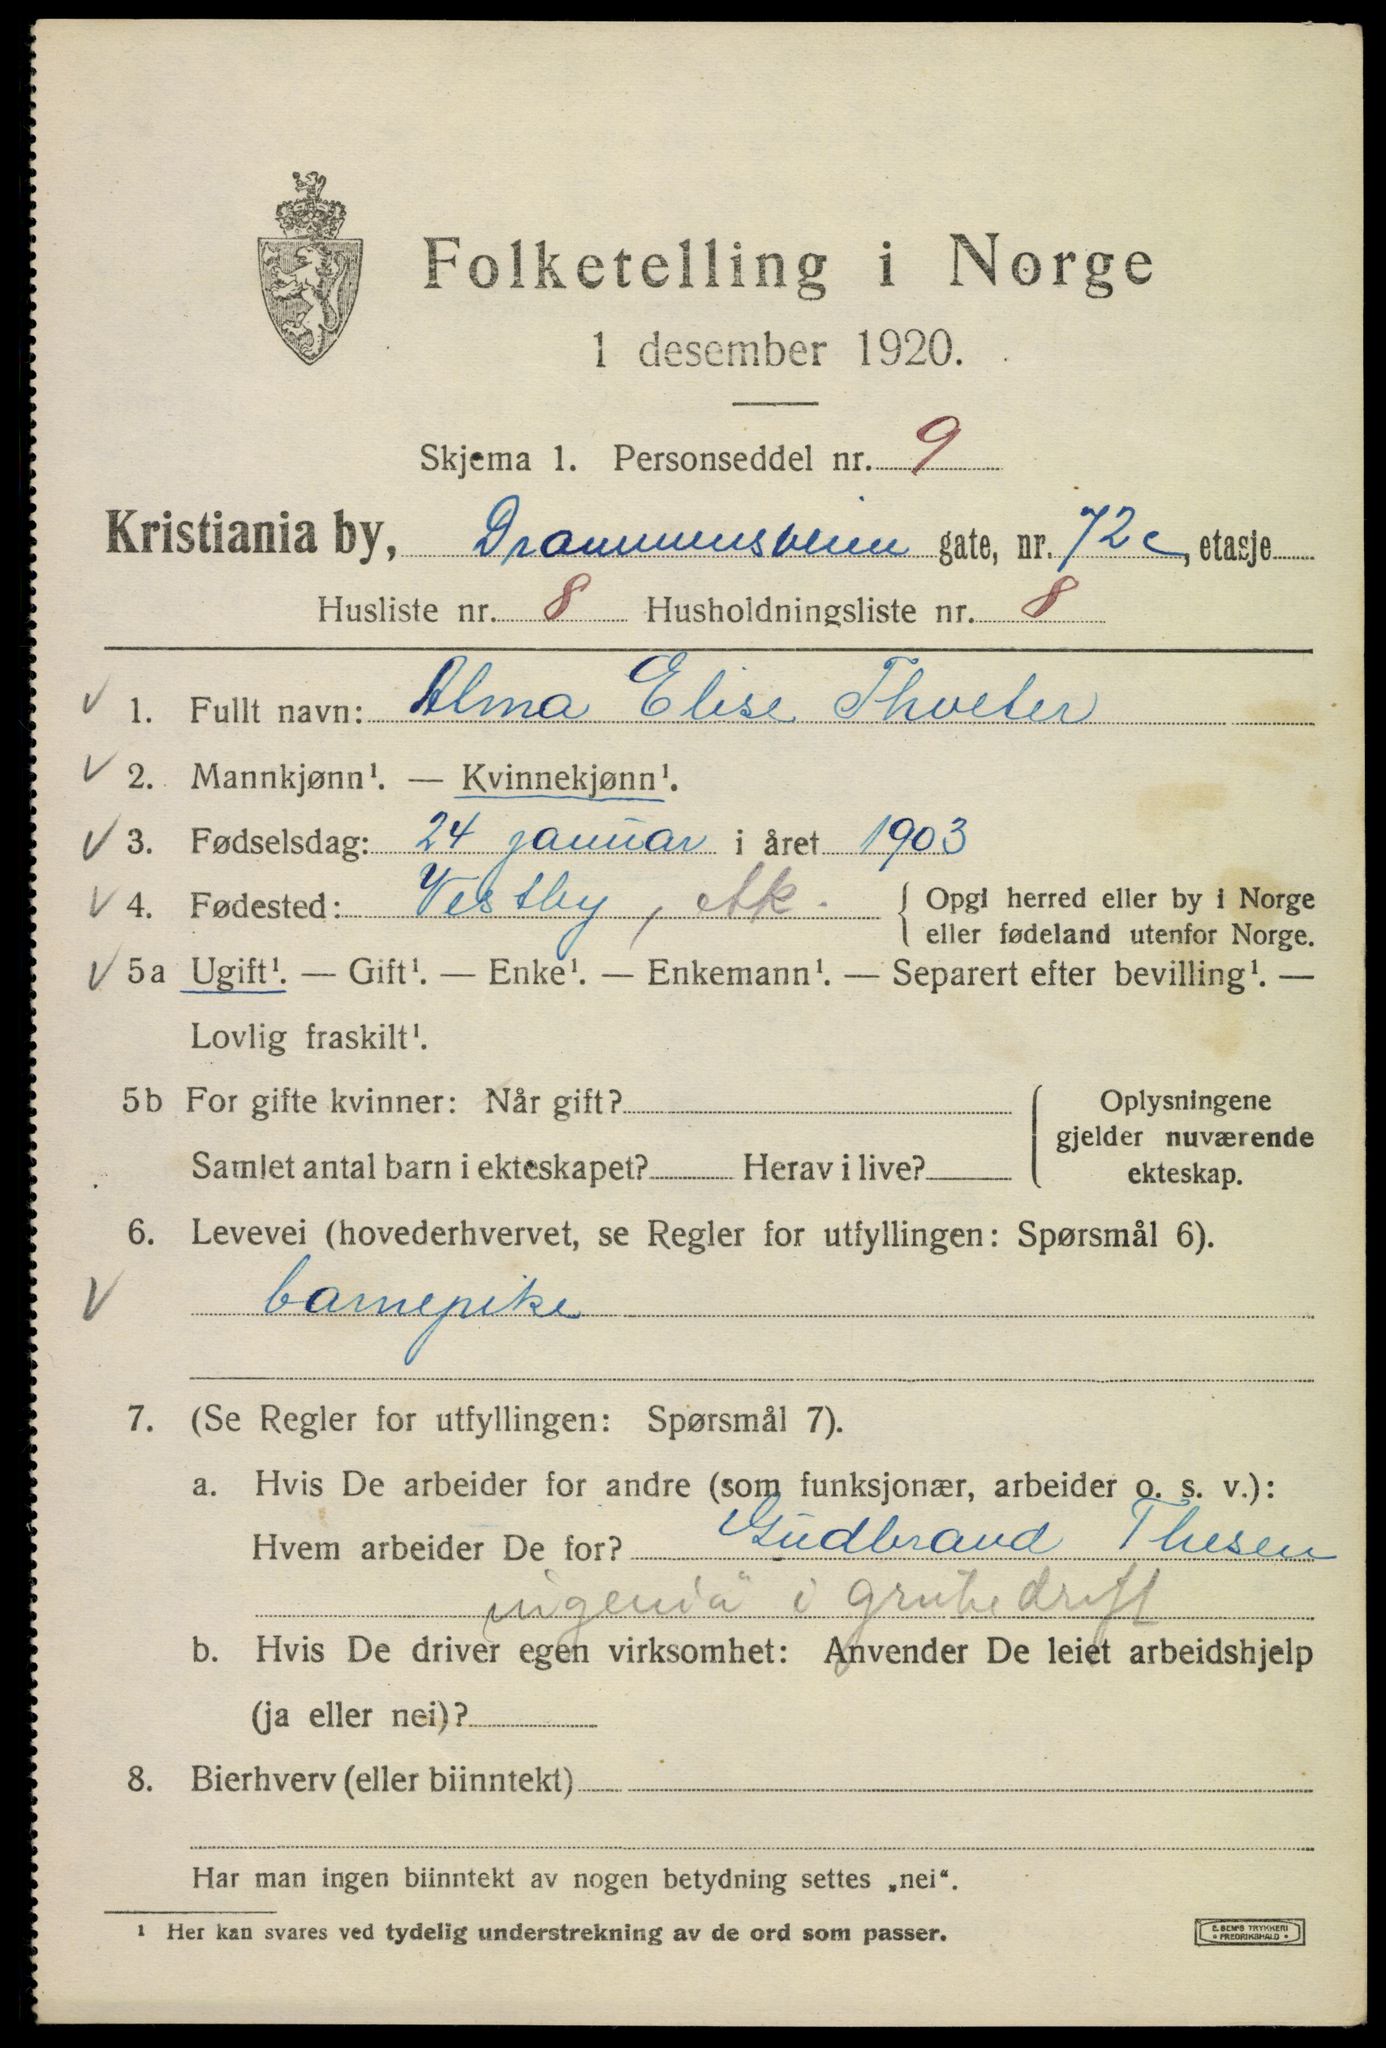 Folketelling i Norge
1 desember 1920.
Skjema 1. Personseddel nr. 9
Kristiania by, Drammensveien gate, nr. 72c, etasje
Husliste nr. 8 Husholdningsliste nr. 8
1. Fullt navn: Alma Elise Thveter
2. Mannkjønn¹. — Kvinnekjønn¹.
3. Fødselsdag: 24 januar i året 1903
4. Fødested: Vestby, Ak. { Opgi herred eller by i Norge
eller fødeland utenfor Norge.
5a Ugift¹. — Gift¹. — Enke¹. — Enkemann¹. — Separert efter bevilling¹. —
Lovlig fraskilt¹.
5b For gifte kvinner: Når gift?
Samlet antal barn i ekteskapet? Herav i live?
Oplysningene
gjelder nuværende
ekteskap.
6. Levevei (hovederhvervet, se Regler for utfyllingen: Spørsmål 6).
barnepike
7. (Se Regler for utfyllingen: Spørsmål 7).
a. Hvis De arbeider for andre (som funksjonær, arbeider o. s. v.):
Hvem arbeider De for? Gudbrand Thesen
ingeniø i grubedrift
b. Hvis De driver egen virksomhet: Anvender De leiet arbeidshjelp
(ja eller nei)?
8. Bierhverv (eller biinntekt)
Har man ingen biinntekt av nogen betydning settes „nei“.
¹ Her kan svares ved tydelig understrekning av de ord som passer.
E. SEM'S TRYKKERI
FREDRIKSHALD